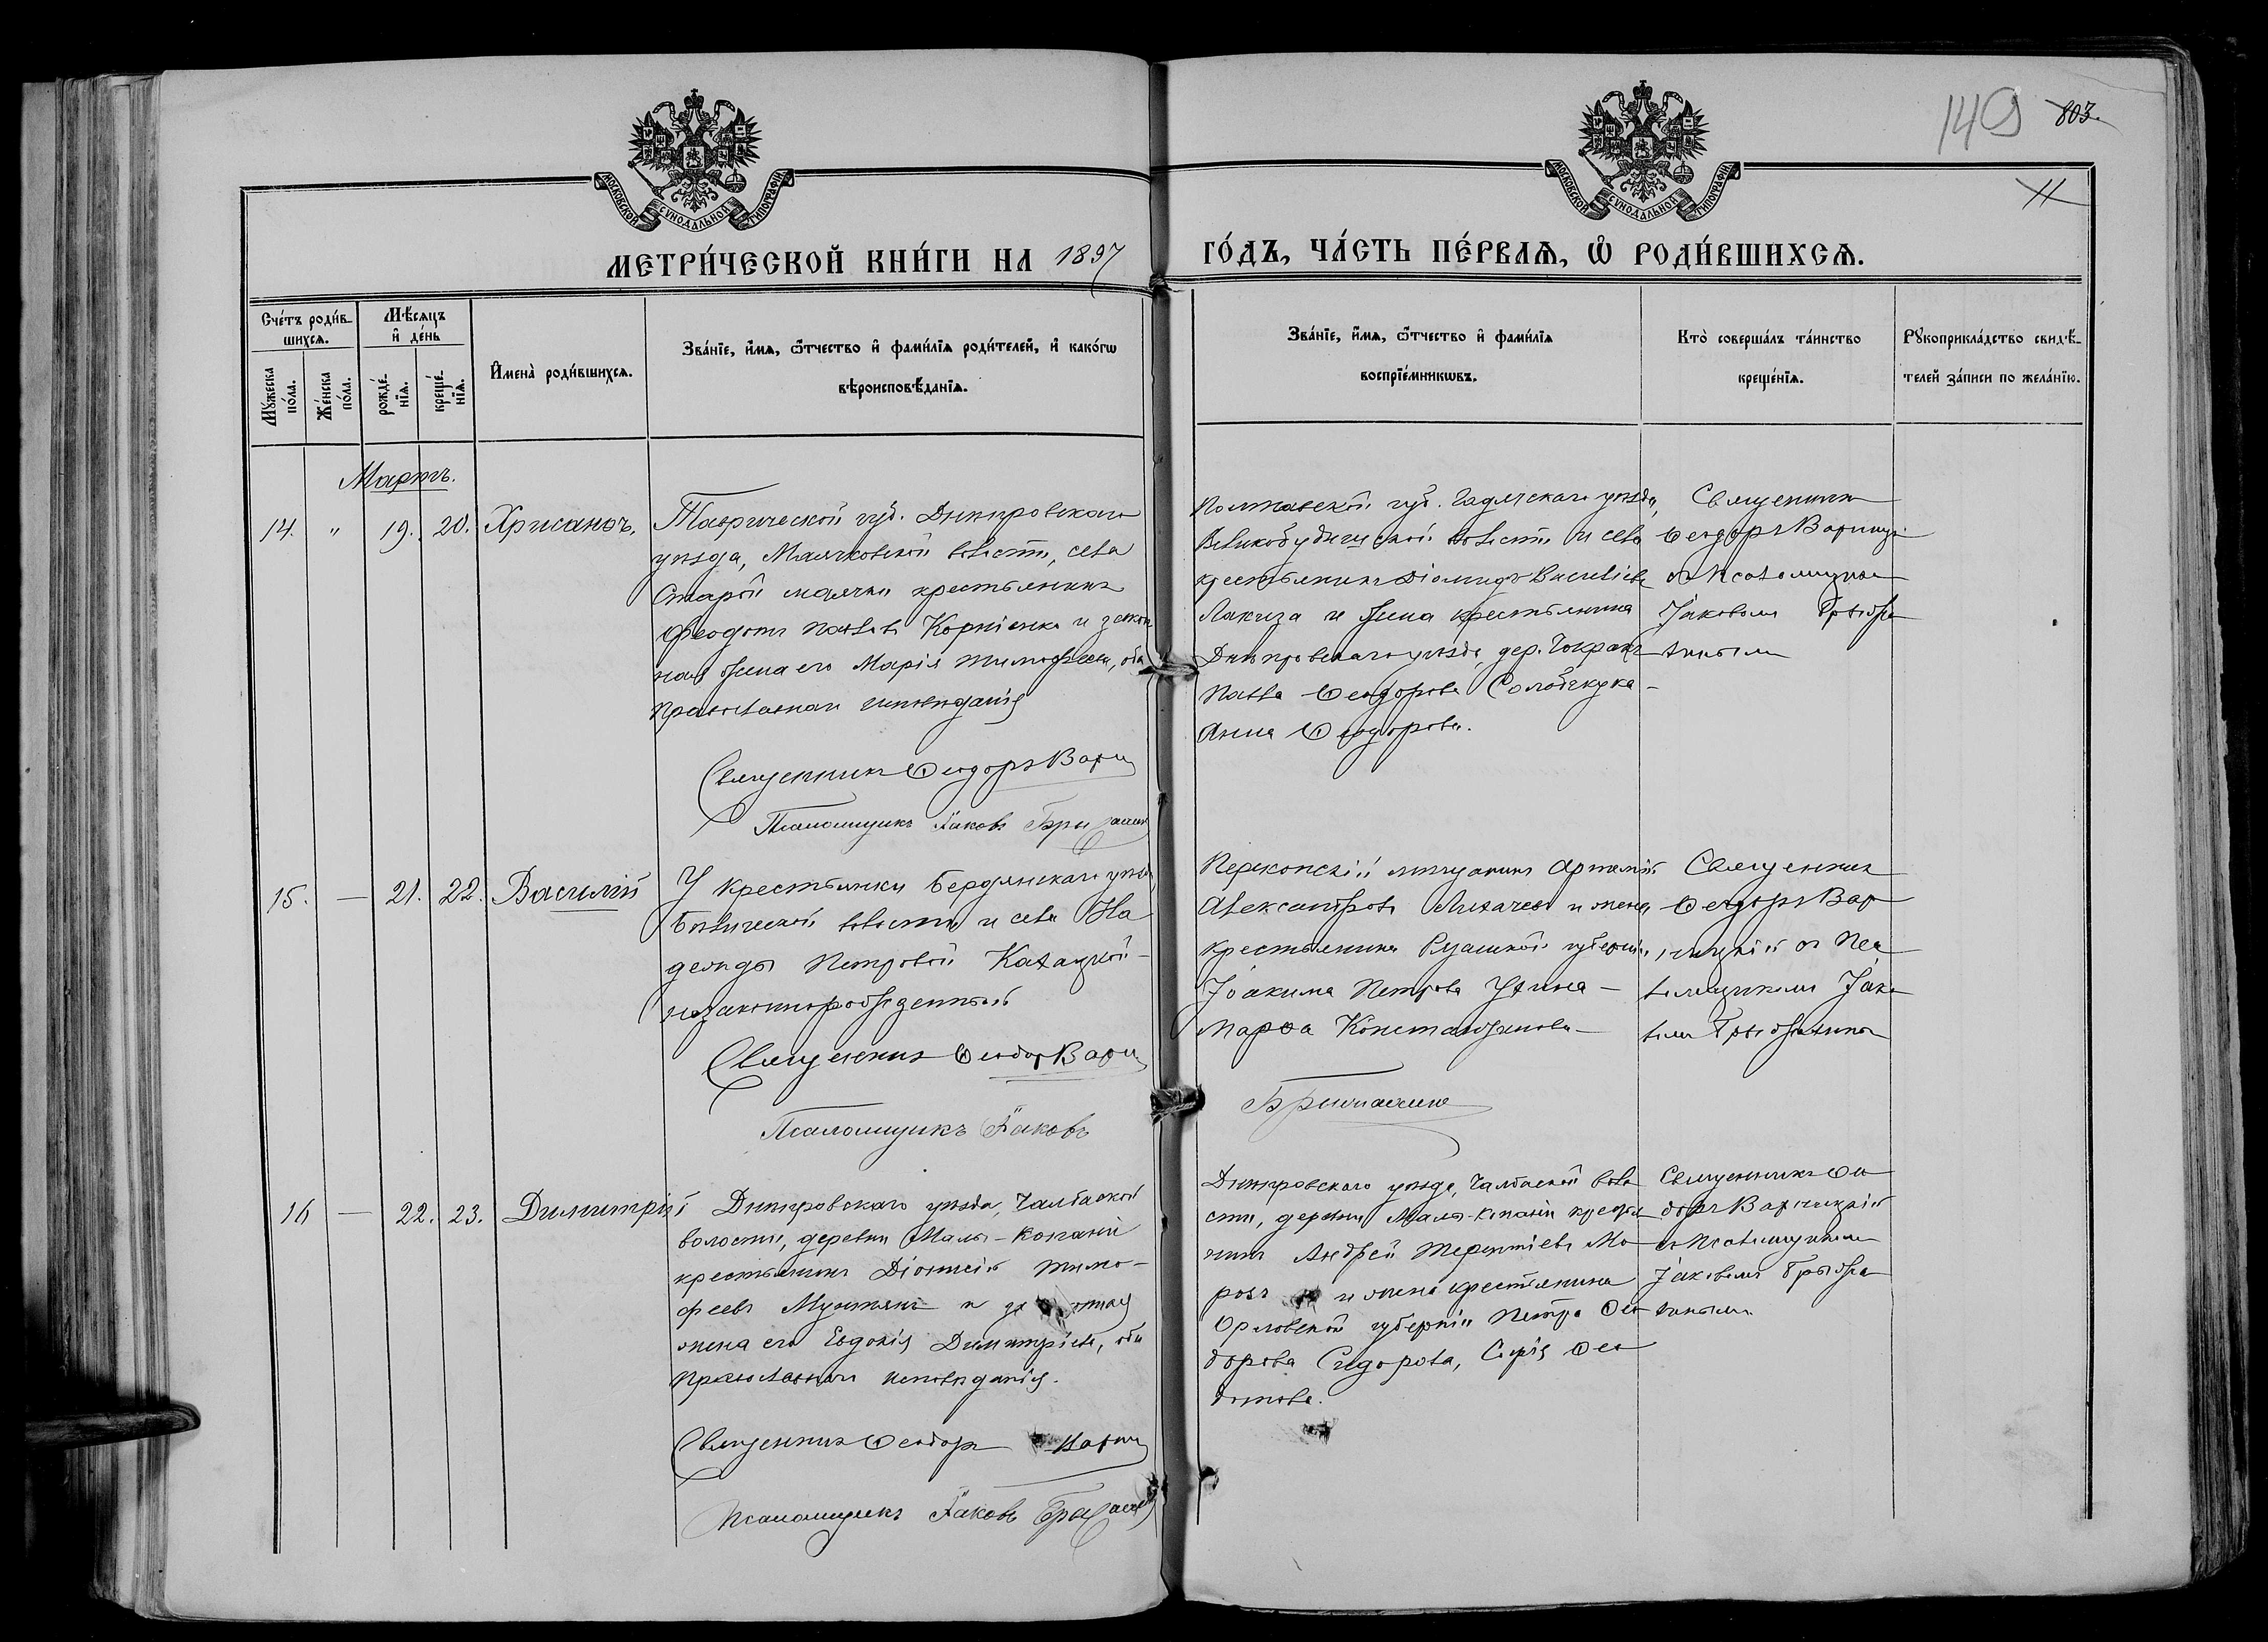 149 803.
МОСКОВСКОЙ СѴНОДАЛЬНОЙ ТИПОГРАФІИ
МОСКОВСКОЙ СѴНОДАЛЬНОЙ ТИПОГРАФІИ
МЕТРИ́ЧЕСКОЙ КНИ́ГИ НА 1897 ГО́ДЪ, ЧА́СТЬ ПЕ́РВАѦ, Ѽ РОДИ́ВШИХСѦ.
Сче́тъ роди́в-
шихсѧ.
Мꙋ́жеска по́ла.
Же́нска по́ла.
Мѣ́сѧцъ
и҆ де́нь
рожде́-
нїѧ.
креще́-
нїѧ.
И҆мена̀ роди́вшихсѧ.
Зва́нїе, и҆́мѧ, ѻ҆́тчество и҆ фами́лїѧ роди́телей, и҆ како́гѡ
вѣроисповѣ́данїѧ.
Зва́нїе, и҆́мѧ, ѻ҆́тчество и҆ фами́лїѧ
воспрїе́мникѡвъ.
Кто̀ соверша́лъ та́инство
креще́нїѧ.
Рꙋкоприкла́дство свидѣ́-
телей за́писи по жела́нїю.
Мартъ.
14. " 19. 20. Хрисанѳъ,
Таврической губ. Днѣпровскаго
уѣзда, Маячковской волости, села
Старой маячки крестьянинъ
Феодотъ Павловъ Корніенко и закон
ная жена его Марія Тимофеева, оба
православнаго исповѣданія
Священникъ Ѳеодоръ
Псаломщикъ Іаковъ
Полтавской губ. Гадячскаго уѣзда,
Великобудищской волости и села
крестьянинъ Діомидъ Васильевъ
Лакиза и жена крестьянина
Днѣпровскаго уѣзда, дер.
Павла Ѳеодорова
Анна Ѳеодорова.
Священникъ
Ѳеодоръ
съ Псаломщикомъ
Іаковомъ
15. — 21. 22. Василій
У крестьянки Бердянскаго уѣзда,
волости и села На
дежды Петровой
незаконнорожденный
Священникъ Ѳеодоръ
Псаломщикъ Іаковъ
Перекопскій мѣщанинъ Артемій
Александровъ Лихачевъ и жена
крестьянина губерніи,
Іоакима Петрова
Марѳа Константинова
Священникъ
Ѳеодоръ Вар
съ Пса
ломщикомъ Іако
вомъ
16 — 22. 23. Димитрій
Днѣпровскаго уѣзда, Чалбаской
волости, деревни Малы-Копани
крестьянинъ Діонисій Тимо-
феевъ и
жена его Евдокія Димитріева, оба
православнаго исповѣданія.
Священникъ Ѳеодоръ
Псаломщикъ Іаковъ
Днѣпровскаго уѣзда, Чалбаской воло
сти, деревни Малы-Копани крестья
нинъ Андрей Терентіевъ Мо
розъ и жена крестьянина
Орловской губерніи Петра Ѳео
дорова Сидорова, Софія Ѳео
дотова.
Священникъ Ѳео
доръ
съ Псаломщикомъ
Іаковомъ